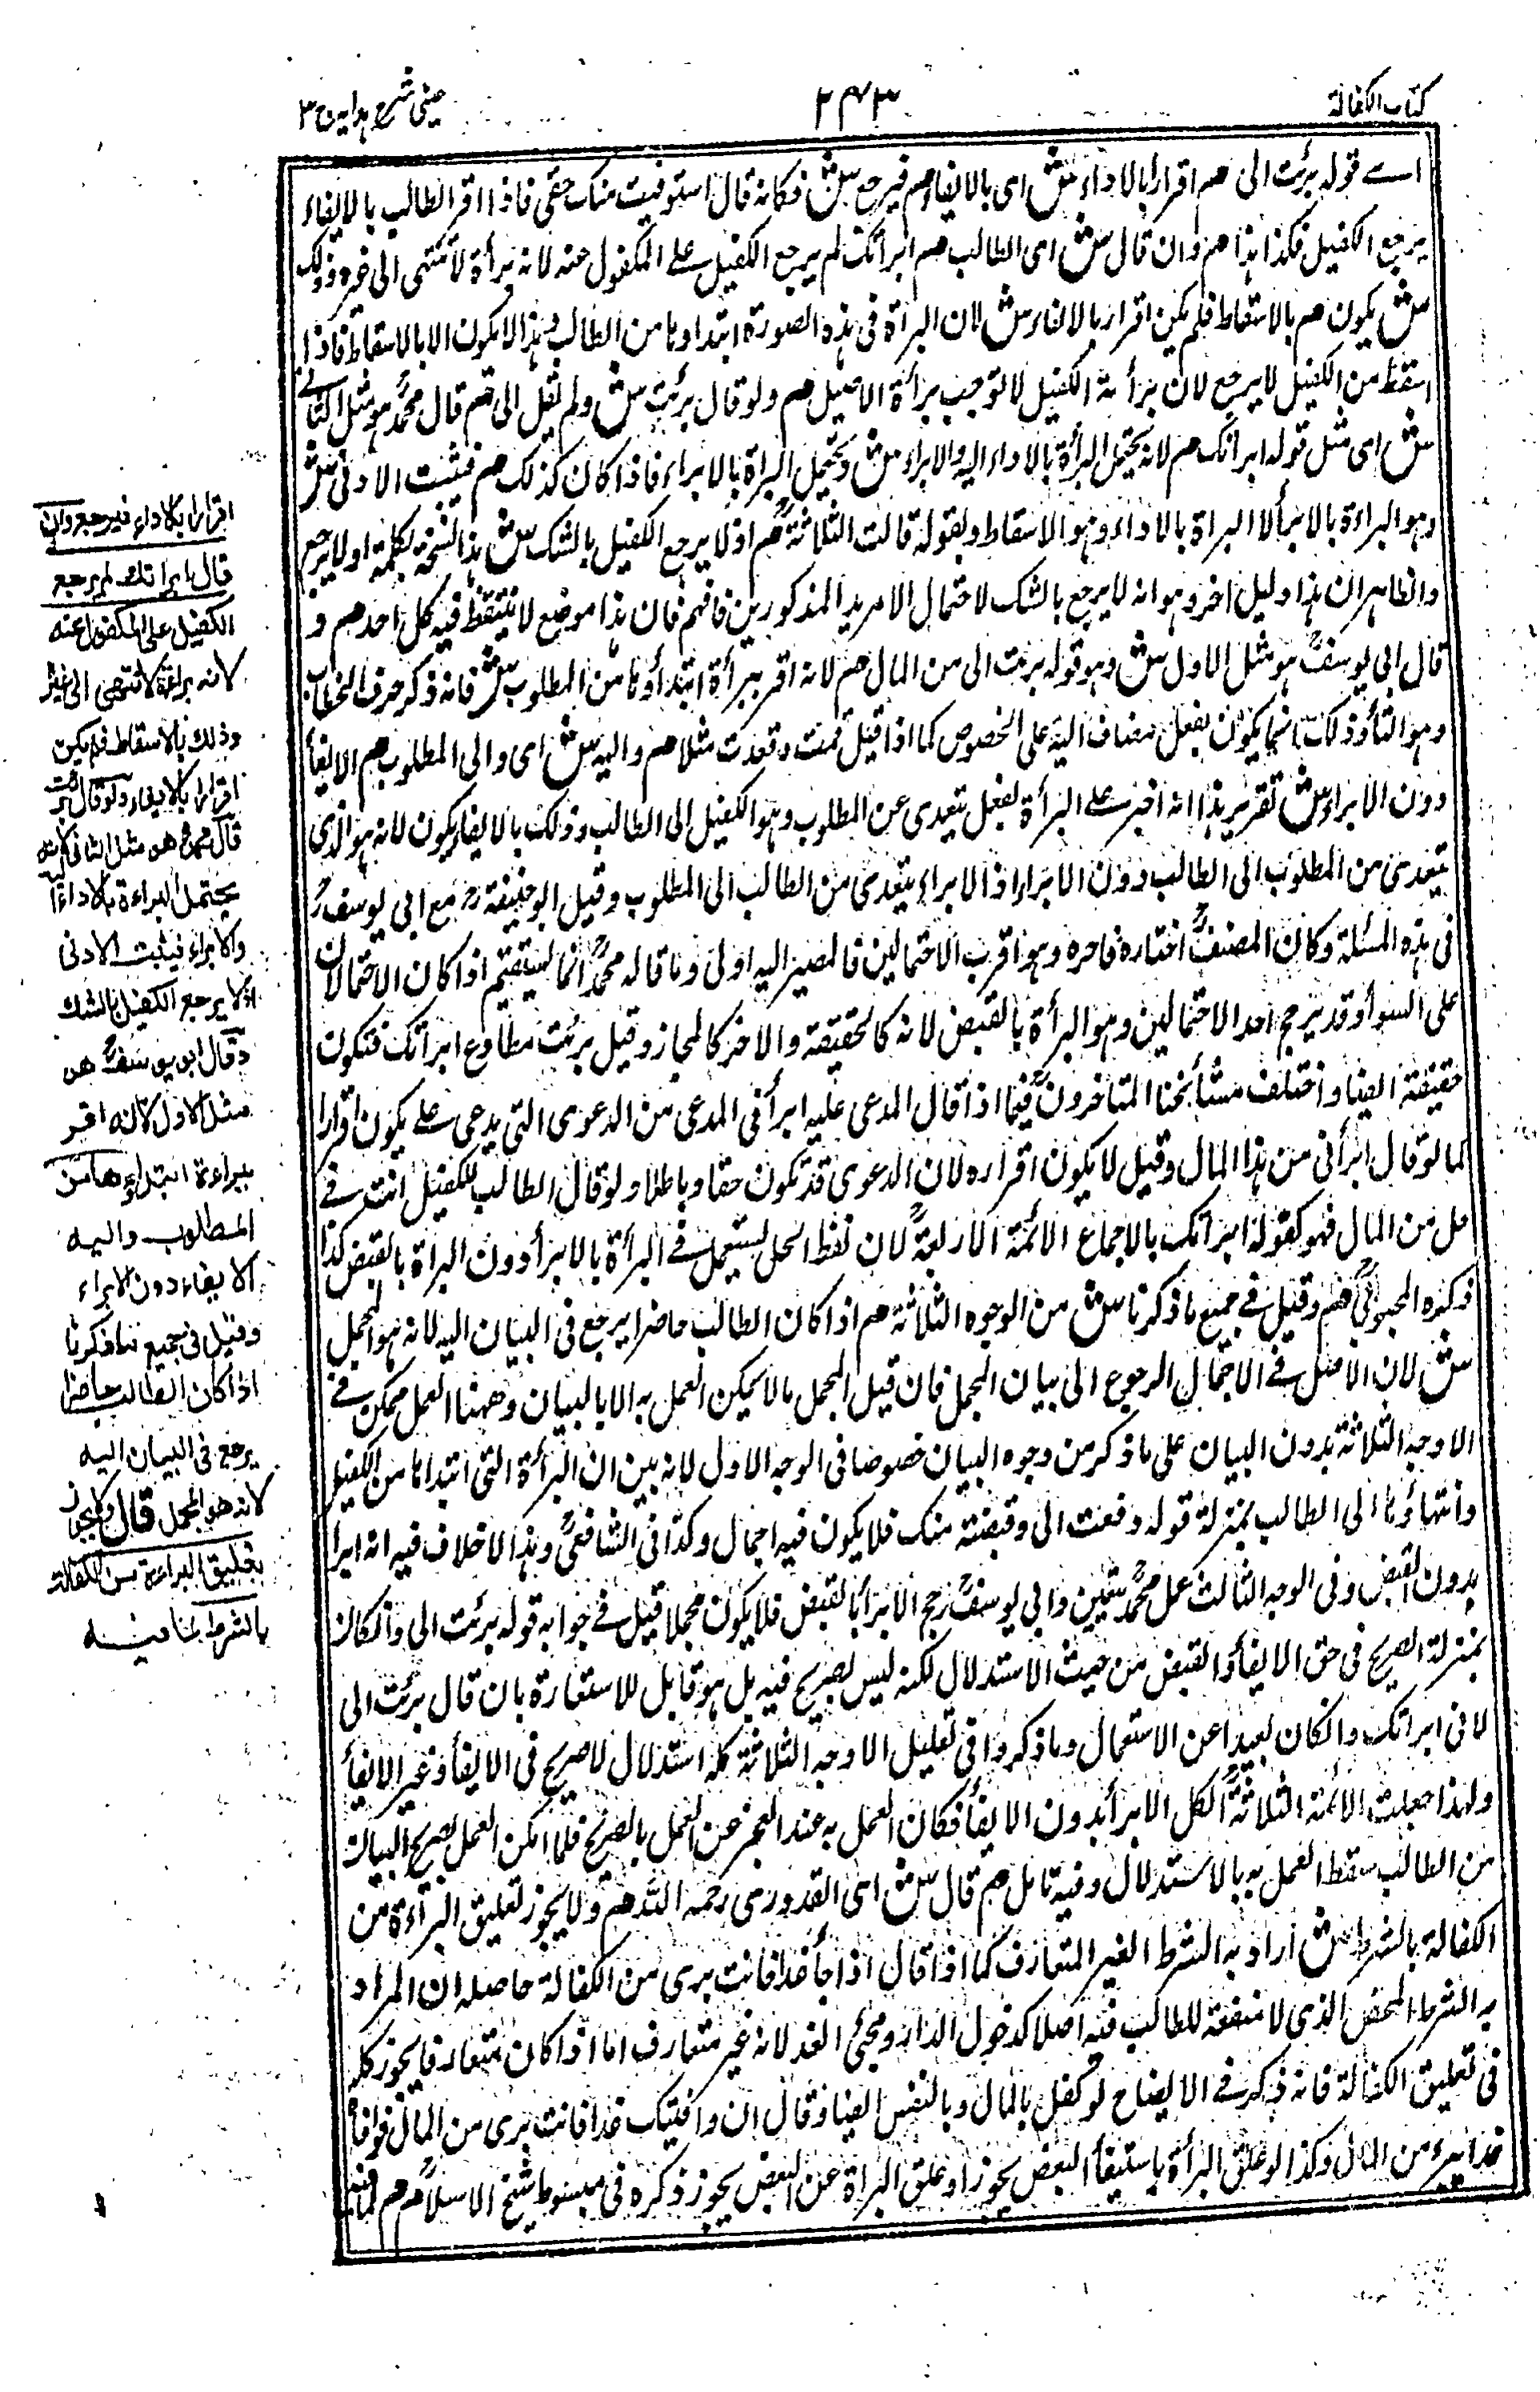 كتاب الكفالة
٢٤٣
عينى شرح هدايه ج ٣
اے قوله برئت الى هم اقرارا بالاداء ش اى بالايفاء هم فيرجع ش فكانه قال استوفيت منك حقى فاذا اقر الطالب بالايفاء
يرجع الكفيل فكذا هذا هم وان قال ش اى الطالب هم ابرأتك لم يرجع الكفيل على المكفول عنه لانه برأة لا تنتهى الى غيره وذلك
ش يكون هم بالاسقاط فلم يكن اقرار بالايفاء ش لان البرأة فى هذه الصورة ابتداوها من الطالب وهذا لا يكون الا بالاسقاط فاذا
اسقط من الكفيل لا يرجع لان برأة الكفيل لا توجب برأة الاصيل هم ولو قال برئت ش ولم يقل الى هم قال محمدؒ هو مثل الثانى
ش اى مثل قوله ابرأتك هم لانه يحتمل البرأة بالاداء اليه والابراء ش ويحتمل البرأة بالابراء فاذا كان كذلك هم فيثبت الادنى ش
وهو البراءة بالابرأ لا البراة بالاداء وهو الاسقاط وبقوله قالت الثلاثةؒ هم اذ لا يرجع الكفيل بالشك ش هذا لنسخة بكلمة او لا يرجع
والظاهر ان هذا دليل اخر وهو انه لا يرجع بالشك لاحتمال الامرين المذكورين فافهم فان هذا موضع لا يتيقظ فيه كل احد هم و
قال ابى يوسفؒ هو مثل الاول ش وهو قوله برئت الى من المال هم لانه اقر ببرأة ابتدأوها من المطلوب ش فانه ذكر حرف الخطاب
وهو التأ وذلك انما يكون بفعل مضاف اليه على الخصوص كما اذا قيل قمت وقعدت مثلا هم واليه ش اى والى المطلوب هم الايفأ
دون الابراء ش تقرير هذا انه اخبر على البرأة بفعل يتعدى عن المطلوب وهو الكفيل الى الطالب وذلك بالايفاء يكون لانه هو الذى
يتعدى من المطلوب الى الطالب دون الابراء اذ الابراء يتعدى من الطالب الى المطلوب وقيل ابو حنيفة رح مع ابى يوسفؒ
فى هذه المسئلة وكان المصنفؒ اختاره فاخره وهو اقرب الاحتمالين فالمصير اليه اولى وما قاله محمدؒ انما يستقيم اذا كان الاحتمالان
على السوأ وقد يرجح احد الاحتمالين وهو البرأة بالقبض لانه كالحقيقة والاخر كالمجاز وقيل برئت مطاوع ابرأتك فتكون
حقيقة ايضا واختلف مشائخنا المتاخرونؒ فيما اذا قال المدعى عليه ابرأنى المدعى من الدعوى التى يدعى على يكون اقرارا
كما لو قال ابرأنى من هذا المال وقيل لا يكون اقراره لان الدعوى قد تكون حقا وباطلا ولو قال الطالب للكفيل انت فى
حل من المال فهو كقوله ابرأتك بالاجماع الائمة الاربعةؒ لان لفظ الحل يستعمل فى البرأة بالابرأ دون البرأة بالقبض كذا
ذكره المحبوبىؒ هم وقيل فى جميع ما ذكرنا ش من الوجوه الثلاثة هم اذا كان الطالب حاضرا يرجع فى البيان اليه لانه هو المجمل
ش لان الاصل فى الاجمال الرجوع الى بيان المجمل فان قيل المجمل ما لا يمكن العمل به الا بالبيان وههنا العمل ممكن فى
الاوجه الثلاثة بدون البيان على ما ذكر من وجوه البيان خصوصا فى الوجه الاول لانه بين ان البرأة التى ابتداها من الكفيل
وانتهاؤها الى الطالب بمنزلة قوله دفعت الى وقبضته منك فلا يكون فيه اجمال وكذا فى الثانى وهذا لا خلاف فيه انه ابرا
بدون القبض وفى الوجه الثالث عمل محمدؒ بيقين وابى يوسفؒ رجح الابرأ بالقبض فلا يكون مجملا قيل فى جوابه قوله برئت الى وان كان
بمنزلة الصريح فى حق الايفأ والقبض من حيث الاستدلال لكنه ليس بصريح فيه بل هو قابل للاستعارة بان قال برئت الى
لانى ابرأتك وان كان بعيدا عن الاستعمال وما ذكروا فى تعليل الاوجه الثلاثة كله استدلال لا صريح فى الايفأ وغير الايفأ
ولهذا جعلت الائمة الثلاثةؒ الكل الابرأ بدون الايفأ فكان العمل به عند العجز عن العمل بالصريح فلما امكن العمل بصريح البيان
من الطالب سقط العمل به بالاستدلال وفيه تامل هم قال ش اى القدورى رحمه الله هم ولا يجوز تعليق البرآءة من
الكفالة بالشرط ش اراد به الشرط الغير المتعارف كما اذا قال اذا جأ غدا فانت برى من الكفالة حاصله ان المراد
به الشرط المحض الذى لا منفعة للطالب فيه اصلا كدخول الدار ومجئ الغد لانه غير متعارف اما اذا كان متعارفا يجوز كله
فى تعليق الكفالة فانه ذكر فى الايضاح لو كفل بالمال وبالنفس ايضا وقال ان وافيتك غدا فانت برى من المال فوافأ
غدا يبرء من المال وكذا لو علق البرأة باستيفأ البعض يجوز او علق البراة عن البعض يجوز ذكره فى مبسوط شيخ الاسلامؒ هم لما فيه
اقرارا بالاداء فيرجع وان
قال ابرأتك لم يرجع
الكفيل على المكفول عنه
لانه براءة لا تنتهى الى غيره
وذلك بالاسقاط فلم يكن
اقرارا بالايفاء ولو قال برئت
قال محمدؒ هو مثل الثانى لانه
يحتمل البراءة بالاداء اليه
والابراء فيثبت الادنى
اذ لا يرجع الكفيل بالشك
وقال ابو يوسفؒ هو
مثل الاول لانه اقر
ببراءة ابتداؤها من
المطلوب واليه
الايفاء دون الابراء
وقيل فى جميع ما ذكرنا
اذا كان الطالب حاضرا
يرجع فى البيان اليه
لانه هو المجمل قال ولا يجوز
تعليق البراءة من الكفالة
بالشرط لما فيه